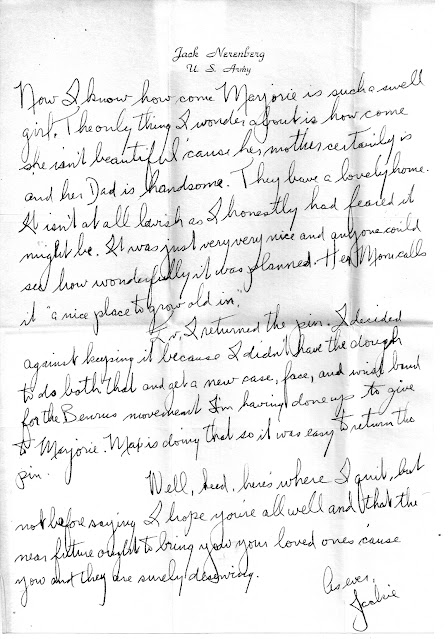 Jack Nerenberg
U. S. Army
Now I know how come Marjorie is such a swell
girl. The only thing I wonder about is how come
she isn't beautiful 'cause her mother certainly is
and her Dad is handsome. They have a lovely home.
It isn't at all lavish as I honestly had feared it
might be. It was just very very nice and anyone could
see how wonderfully it was planned. Her Mom calls
it "a nice place to grow old in."
I returned the pin. I decided
against keeping it because I didn't have the dough
to do both that and get a new case, face, and wrist band
for the Benrus movement I'm having done up to give
to Marjorie. is doing that so it was easy to return the
pin.
Well, here's where I quit, but
not before saying I hope you're all well and that the
near future ought to bring you your loved ones 'cause
you and they are surely deserving.
As ever,
Jackie